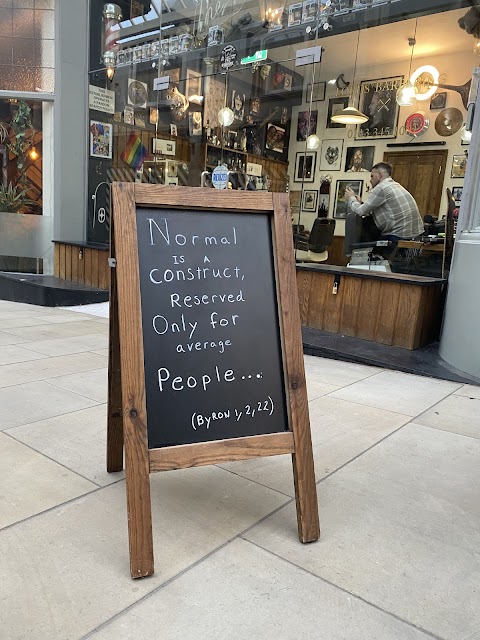 Normal
IS A
Construct,
Reserved
Only for
average
People...
(ByRON 1,2,22)